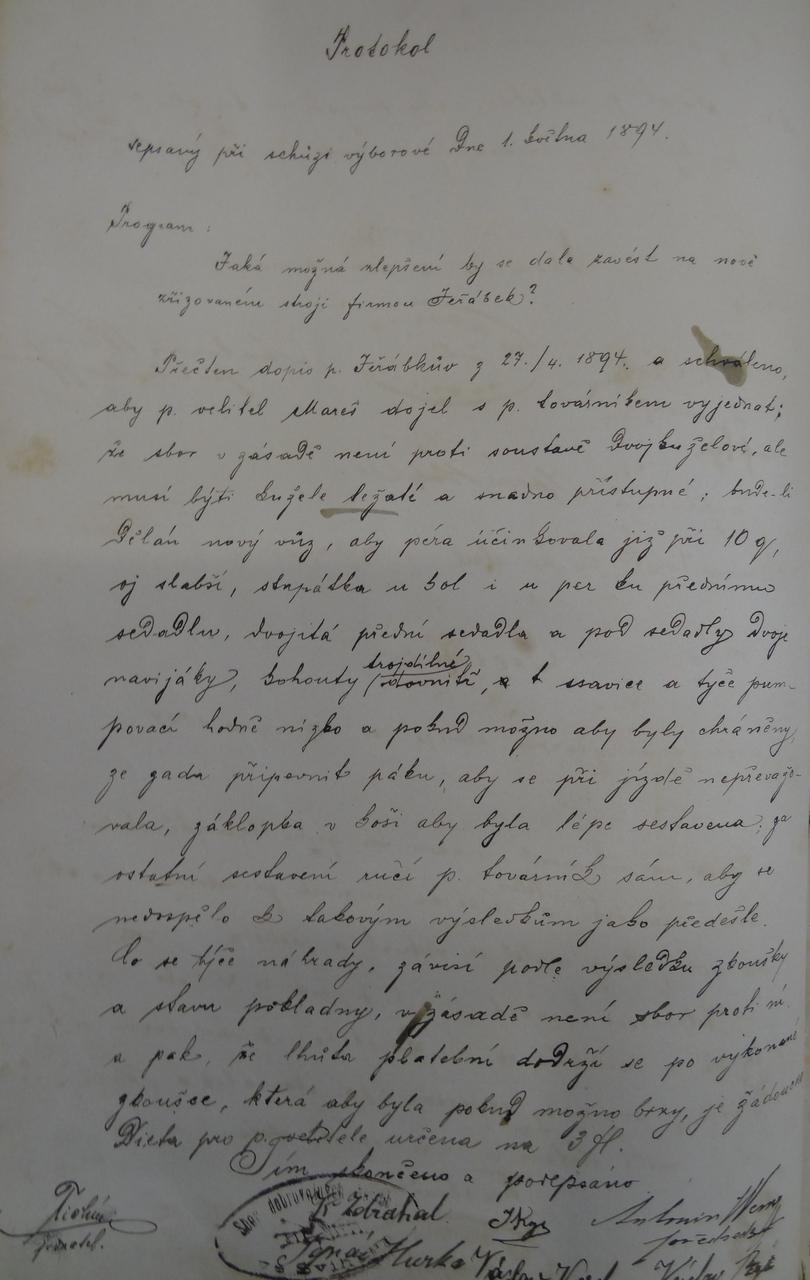 Protokol
sepsaný při schůzi výborové dne 1. května 1894.
Program:
Jaká možná zlepšení by se dala zavést na nově
zřizovaném stroji firmou Jeřábek?
Přečten dopis p. Jeřábkův z 27./4. 1894. a schváleno,
aby p. velitel Mareš dojel s p. továrníkem vyjednat;
že sbor v zásadě není proti soustavě dvojkuželové, ale
musí býti kužele ležaté a snadno přístupné; bude-li
dělán nový vůz, aby péra účinkovala již při 10 q,
oj slabší, stupátka u kol i u per ku přednímu
sedadlu, dvojitá přední sedadla a pod sedadly dvoje
navijáky, kohouty trojdílné dovnitř, t ssavice a tyče pum-
povací hodně nízko a pokud možno aby byly chráněny,
ze zadu připevnit páku, aby se při jízdě nepřevažo-
vala, záklopka v koši aby byla lépe sestavena; za
ostatní sestavení ručí p. továrník sám, aby se
nedospělo k takovým výsledkům jako předešle.
Co se týče náhrady, závisí podle výsledku zkoušky
a stavu pokladny, v zásadě není sbor proti ní
a pak, že lhůta platební dodrží se po vykonané
zkoušce, která aby byla pokud možno brzy, je žádoucno
Dieta pro p. velitele určena na 3 fl.
Tím skončeno a podepsáno
jednatel.
Sbor dobrovolných
Fr. Zdráhal
Antonín
předseda
Ignác Hurka
Václav